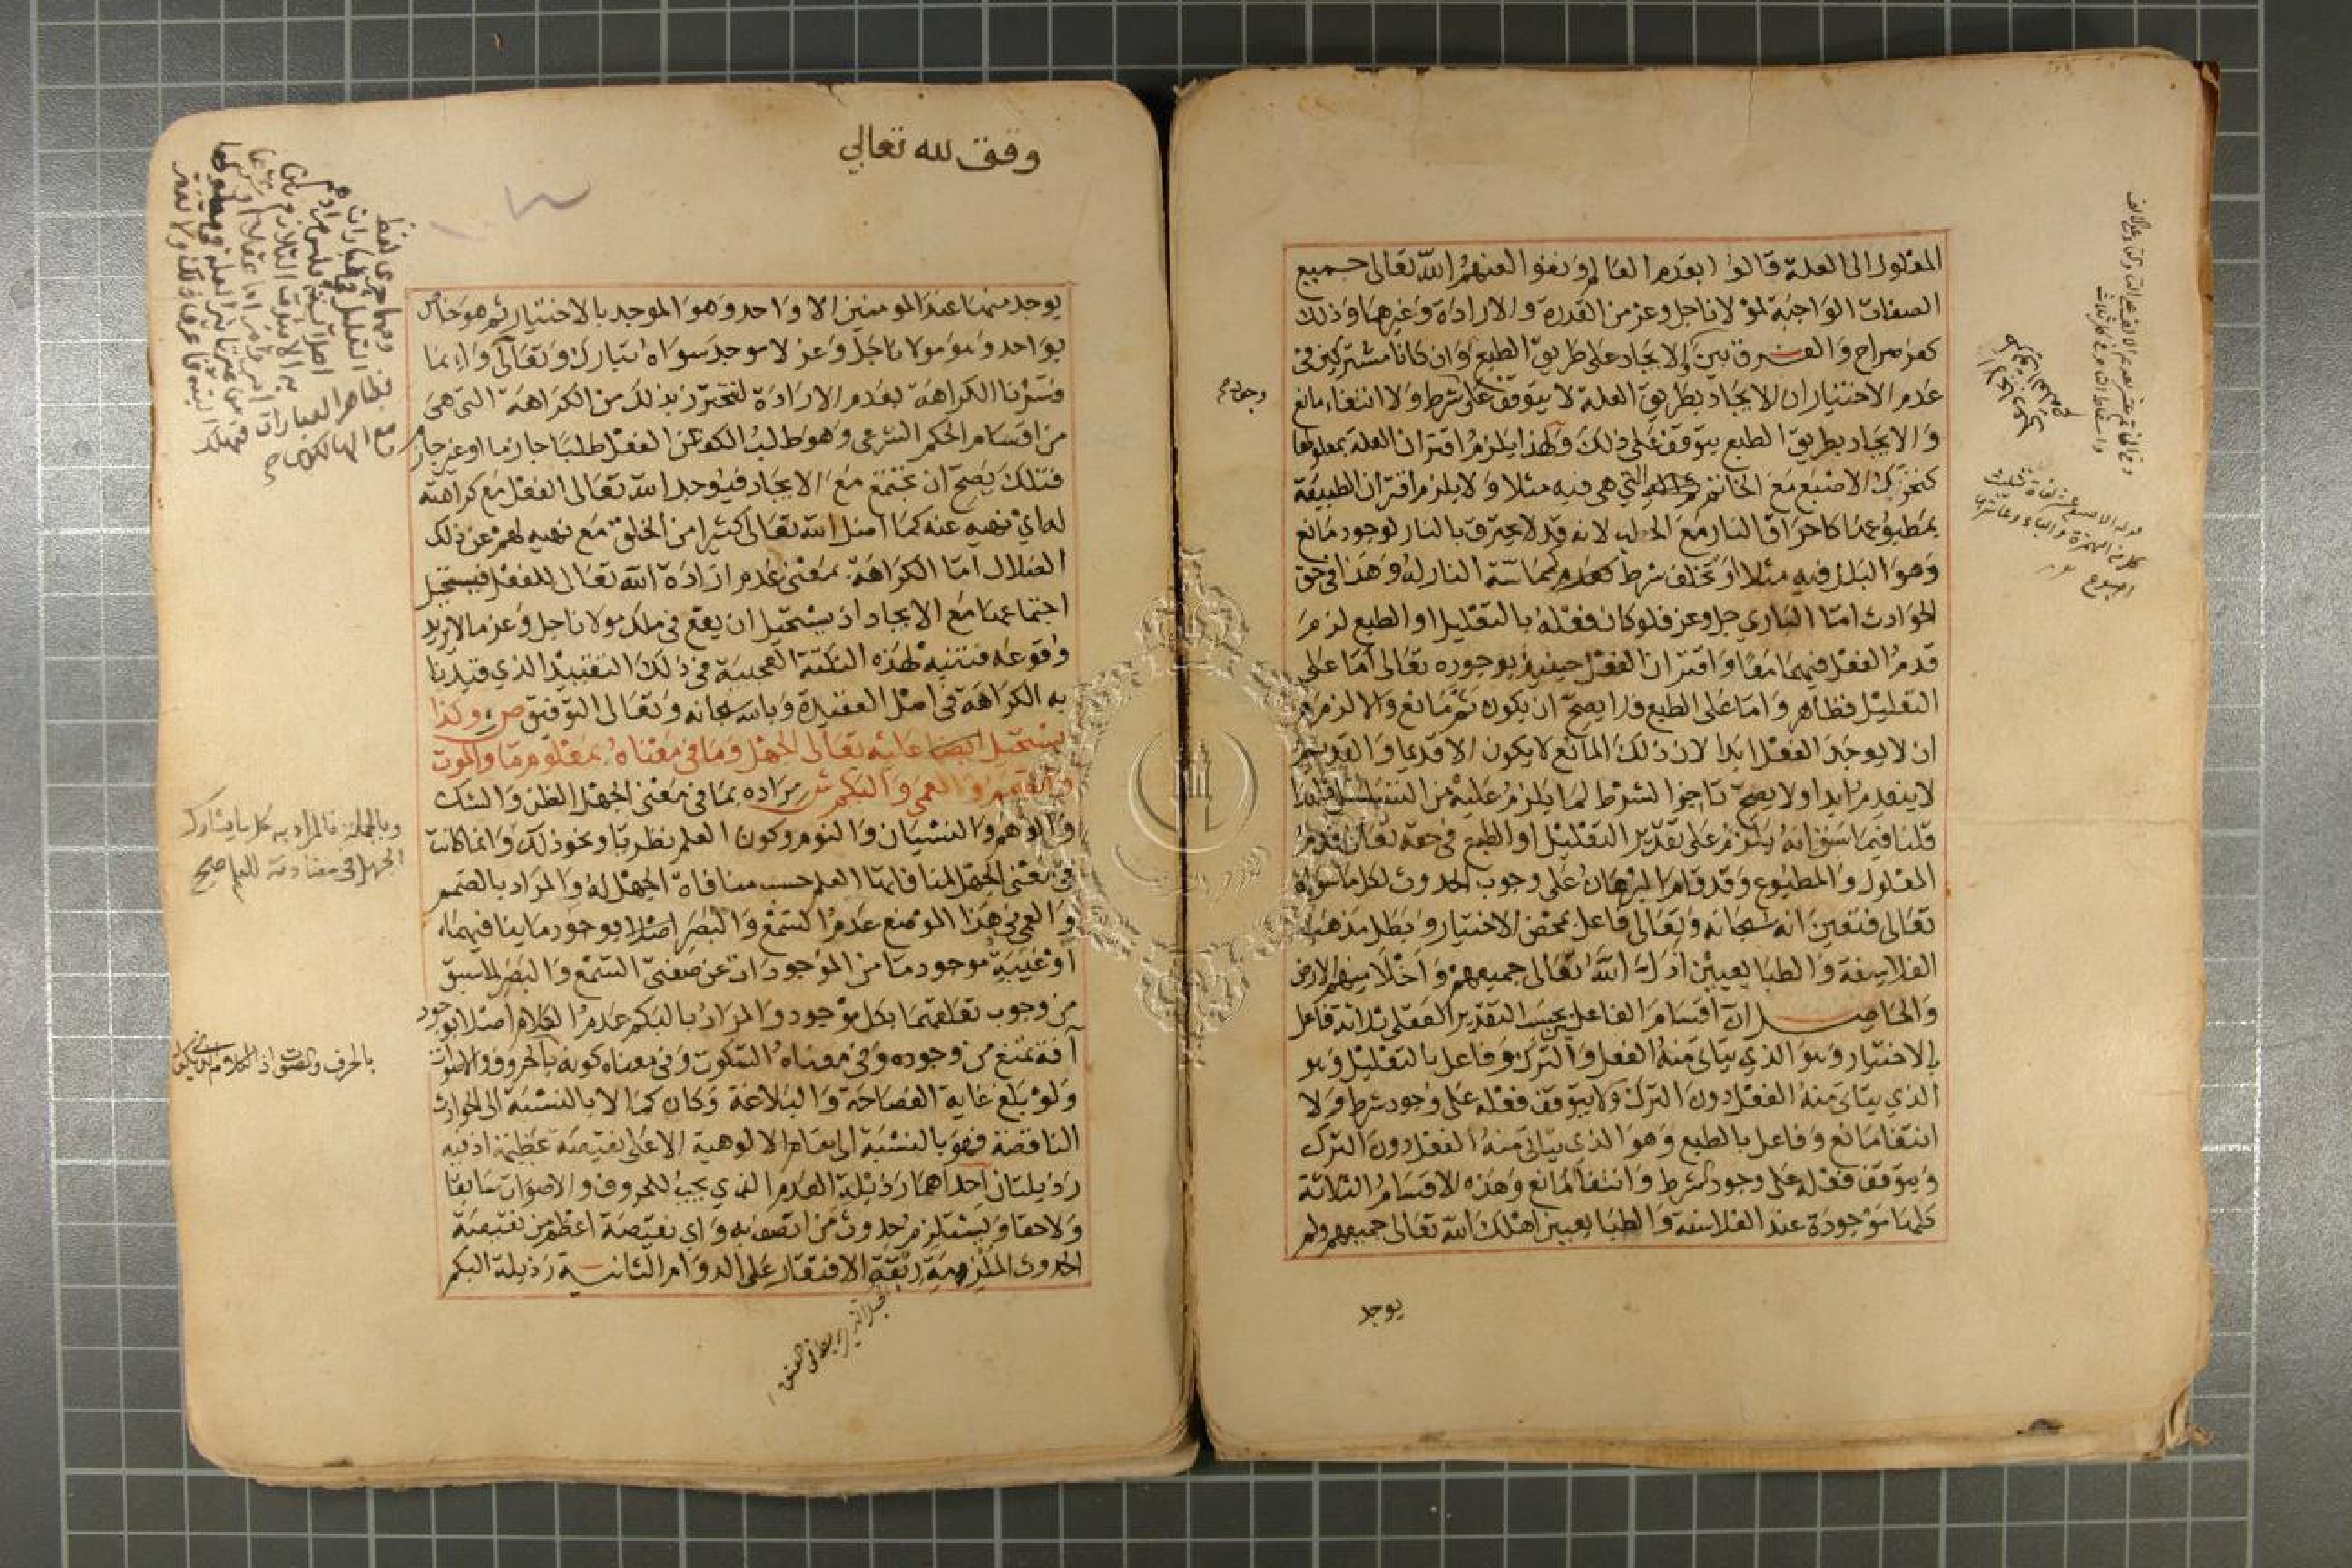 المعلول الى العلة قالوا بقدم العالم ونفوا لعنهم الله تعالى جميع
الصفات الواجبة لمولانا جل وعز من القدرة والارادة وغيرهما وذلك
كفر صراح والفرق بين الايجاد على طريق الطبع وان كانا مشتركين في
عدم الاختيار ان الايجاد بطريق العلة لا يتوقف على شرط ولا انتفاء مانع
والايجاد بطريق الطبع يتوقف على ذلك ولهذا يلزم اقتران العلة بمعلولها
كتحرك الاصبع مع الخاتم التي هي فيه مثلا ولا يلزم اقتران الطبيعة
بمطبوعها كاحراق النار مع الحطب لانه قد لا يحترق بالنار لوجود مانع
وهو البلل فيه مثلا او تخلف شرط كعدم مماسة النار له وهذا في حق
الحوادث اما الباري جل وعز فلو كان فعله بالتعليل او الطبع لزم
قدم الفعل فيهما معا واقتران الفعل حينئذ بوجوده تعالى اما على
التعليل فظاهر واما على الطبع فلا يصح ان يكون ثم مانع والا لزم
ان لا يوجد الفعل ابدا لان ذلك المانع لا يكون الا قديما والقديم
لا ينعدم ابدا ولا يصح تاخر الشرط لما يلزم عليه من التسلسل فلهذا
قلنا فيما سبق انه يلزم على تقدير التعليل او الطبع في حقه تعالى قدم
المعلول والمطبوع وقد قام البرهان على وجوب الحدوث لكل ما سواه
تعالى فتعين انه سبحانه وتعالى فاعل بمحض الاختيار وبطل مذهب
الفلاسفة والطبايعيين اذل الله تعالى جميعهم واخلا منهم الارض
والحاصل ان اقسام الفاعل بحسب التقدير العقلي ثلاثة فاعل
بالاختيار وهو الذي يتاتى منه الفعل والترك وفاعل بالتعليل وهو
الذي يتاتى منه الفعل دون الترك ولا يتوقف فعله على وجود شرط ولا
انتفا مانع وفاعل بالطبع وهو الذي يتاتى منه الفعل دون الترك
ويتوقف فعله على وجود شرط وانتفا المانع وهذه الاقسام الثلاثة
كلها موجودة عند الفلاسفة والطبايعيين اهلك الله تعالى جميعهم ولم
يوجد
وقف لله تعالي
يوجد منها عند المومنين الا واحد وهو الموجد بالاختيار ثم هو خاص
بواحد وهو مولانا جل وعز لا موجد سواه تبارك وتعالى وانما
فسرنا الكراهة بعدم الارادة لنحترز بذلك من الكراهة التي هي
من اقسام الحكم الشرعي وهو طلب الكف عن الفعل طلبا جازما او غير جازم
فتلك يصح ان تجتمع مع الايجاد فيوجد الله تعالى الفعل مع كراهته
له اي نهيه عنه كما اضل الله تعالى كثيرا من الخلق مع نهيه لهم عن ذلك
الضلال اما الكراهة بمعنى عدم ارادة الله تعالى للفعل فيستحيل
اجتماعها مع الايجاد اذ يستحيل ان يقع في ملك مولانا جل وعز ما لا يريد
وقوعه فتنبه لهذه النكتة العجيبة في ذلك التقييد الذي قيدنا
به الكراهة في اصل العقيدة وبالله سبحانه وتعالى التوفيق ص وكذا
يستحيل ايضا عليه تعالى الجهل وما في معناه بمعلوم ما والموت
والصمم والعمى والبكم ش مراده بما في معنى الجهل الظن والشك
والوهم والنسيان والنوم وكون العلم نظريا ونحو ذلك وانما كانت
في معنى الجهل لمنافاتها العلم حسب منافاة الجهل له والمراد بالصمم
والعمى في هذا الموضع عدم السمع والبصر اصلا بوجود ما ينافيهما
او غيبة موجود ما من الموجودات عن صفتي السمع والبصر لما سبق
من وجوب تعلقهما بكل موجود والمراد بالبكم عدم الكلام اصلا بوجود
آفة تمنع من وجوده وفي معناه السكوت وفي معناه كونه بالحروف والاصوات
ولو بلغ غاية الفصاحة والبلاغة وكان كمالا بالنسبة الى الحوادث
الناقصة فهو بالنسبة الى مقام الالوهية الاعلى نقيصة عظيمة اذ فيه
رذيلتان احداهما رذيلة العدم الذي يجب للحروف والاصوات سابقا
ولاحقا ويستلزم حدوث من اتصف به واي نقيصة اعظم من نقيصة
الحدوث الملزومة ربقة الافتقار على الدوام الثانية رذيلة البكم
وبالجملة فالمراد به كل ما يشارك
الجهل في مضادته للعلم صح